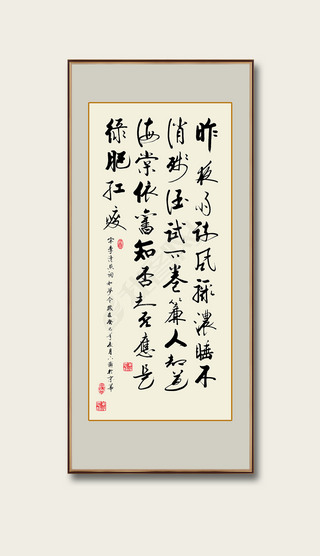 昨夜雨疏风骤濃睡不
消残酒试问卷簾人却道
海棠依舊知否知否應是
绿肥红瘦
宋李清照词如夢令